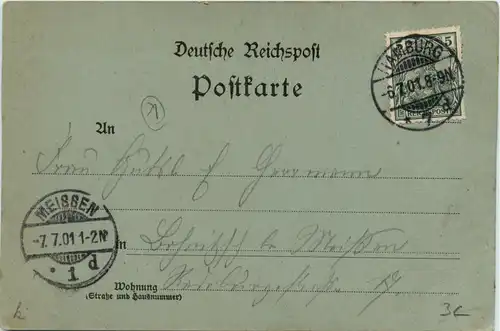 Deutsche Reichspost
Postkarte
5
REICHSPOST
HAMBURG
-6.7.01.8-9N.
* 7 d
An
Frau
Herrmann
MEISSEN
-7.7.01 1-2N
p 1 *
in
bei Meißen
Wohnung
(Straße und Hausnummer)
3c